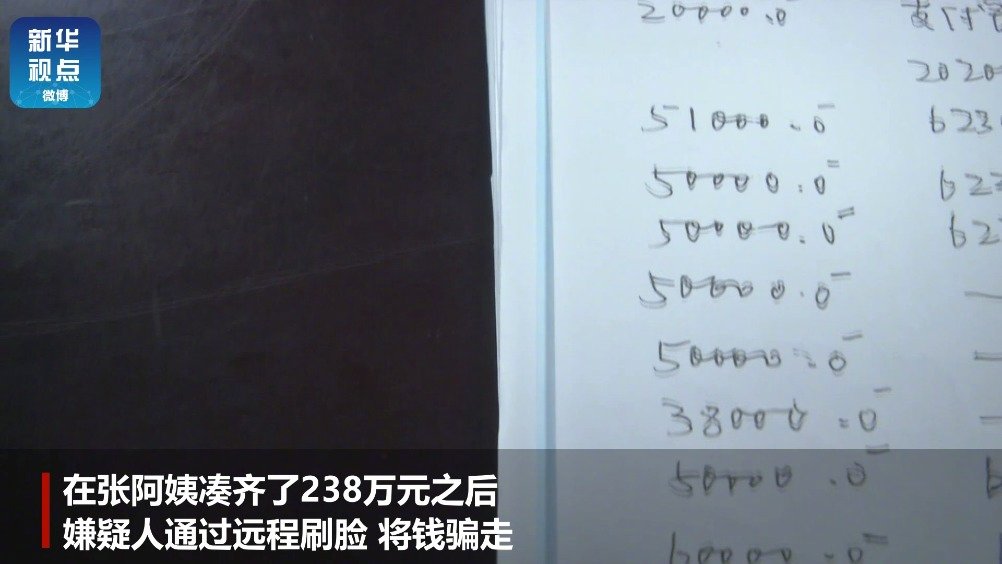 新华
视点
微博
20000.0
2020
51000.0 6230
50000.0 622
50000.0 622
50000.0
50000.0
38000.0
50000.0
60000.0
在张阿姨凑齐了238万元之后
嫌疑人通过远程刷脸 将钱骗走